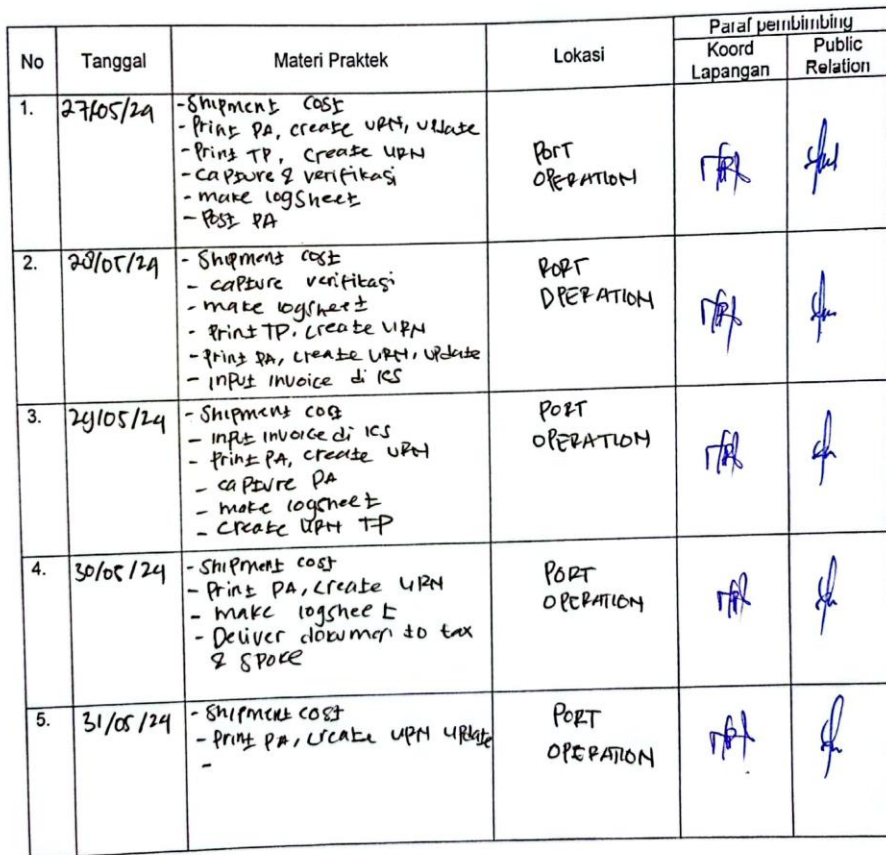 No Tanggal Materi Praktek Lokasi Paraf pembimbing
Koord Lapangan Public Relation
1. 27/05/24 - Shipment cost
- Print PA, create URN, update
- Print TP, create URN
- capture & verifikasi
- make logsheet
- Post PA
PORT
OPERATION
2. 28/05/24 - Shipment cost
- capture verifikasi
- make logsheet
- Print TP, create URN
- Print PA, create URN, update
- input invoice di ICS
PORT
OPERATION
3. 29/05/24 - Shipment cost
- input invoice di ICS
- Print PA, create URN
- capture PA
- make logsheet
- create URN TP
PORT
OPERATION
4. 30/05/24 - Shipment cost
- Print PA, create URN
- make logsheet
- Deliver dokumen to tax
& spoke
PORT
OPERATION
5. 31/05/24 - Shipment cost
- Print PA, create URN update
-
PORT
OPERATION